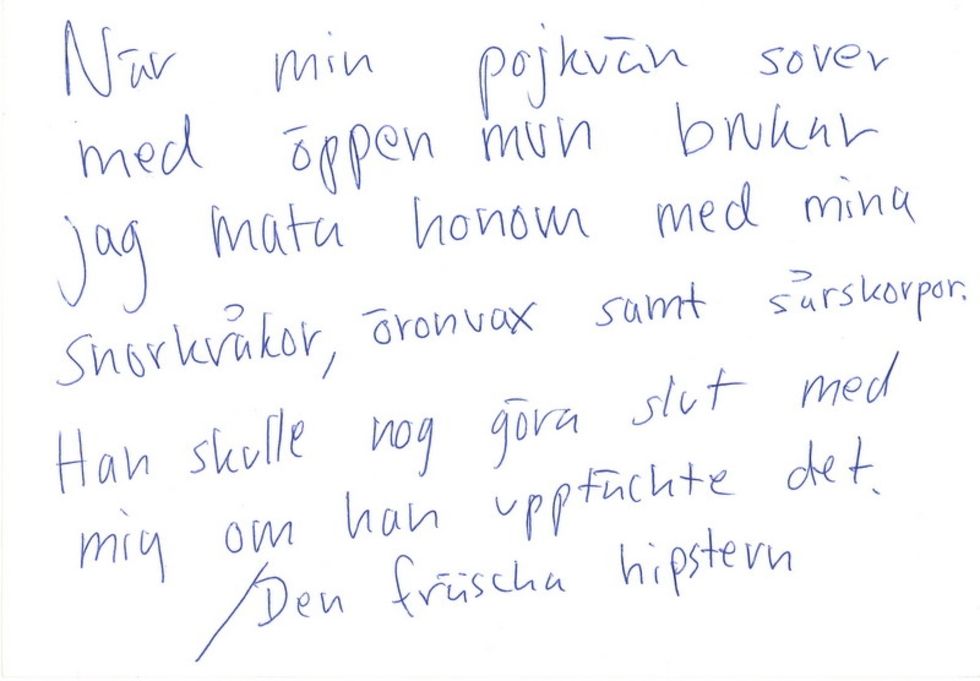 När min pojkvän sover
med öppen mun brukar
jag mata honom med mina
snorkråkor, öronvax samt sårskorpor.
Han skulle nog göra slut med
mig om han upptäckte det.
/Den fräscha hipstern